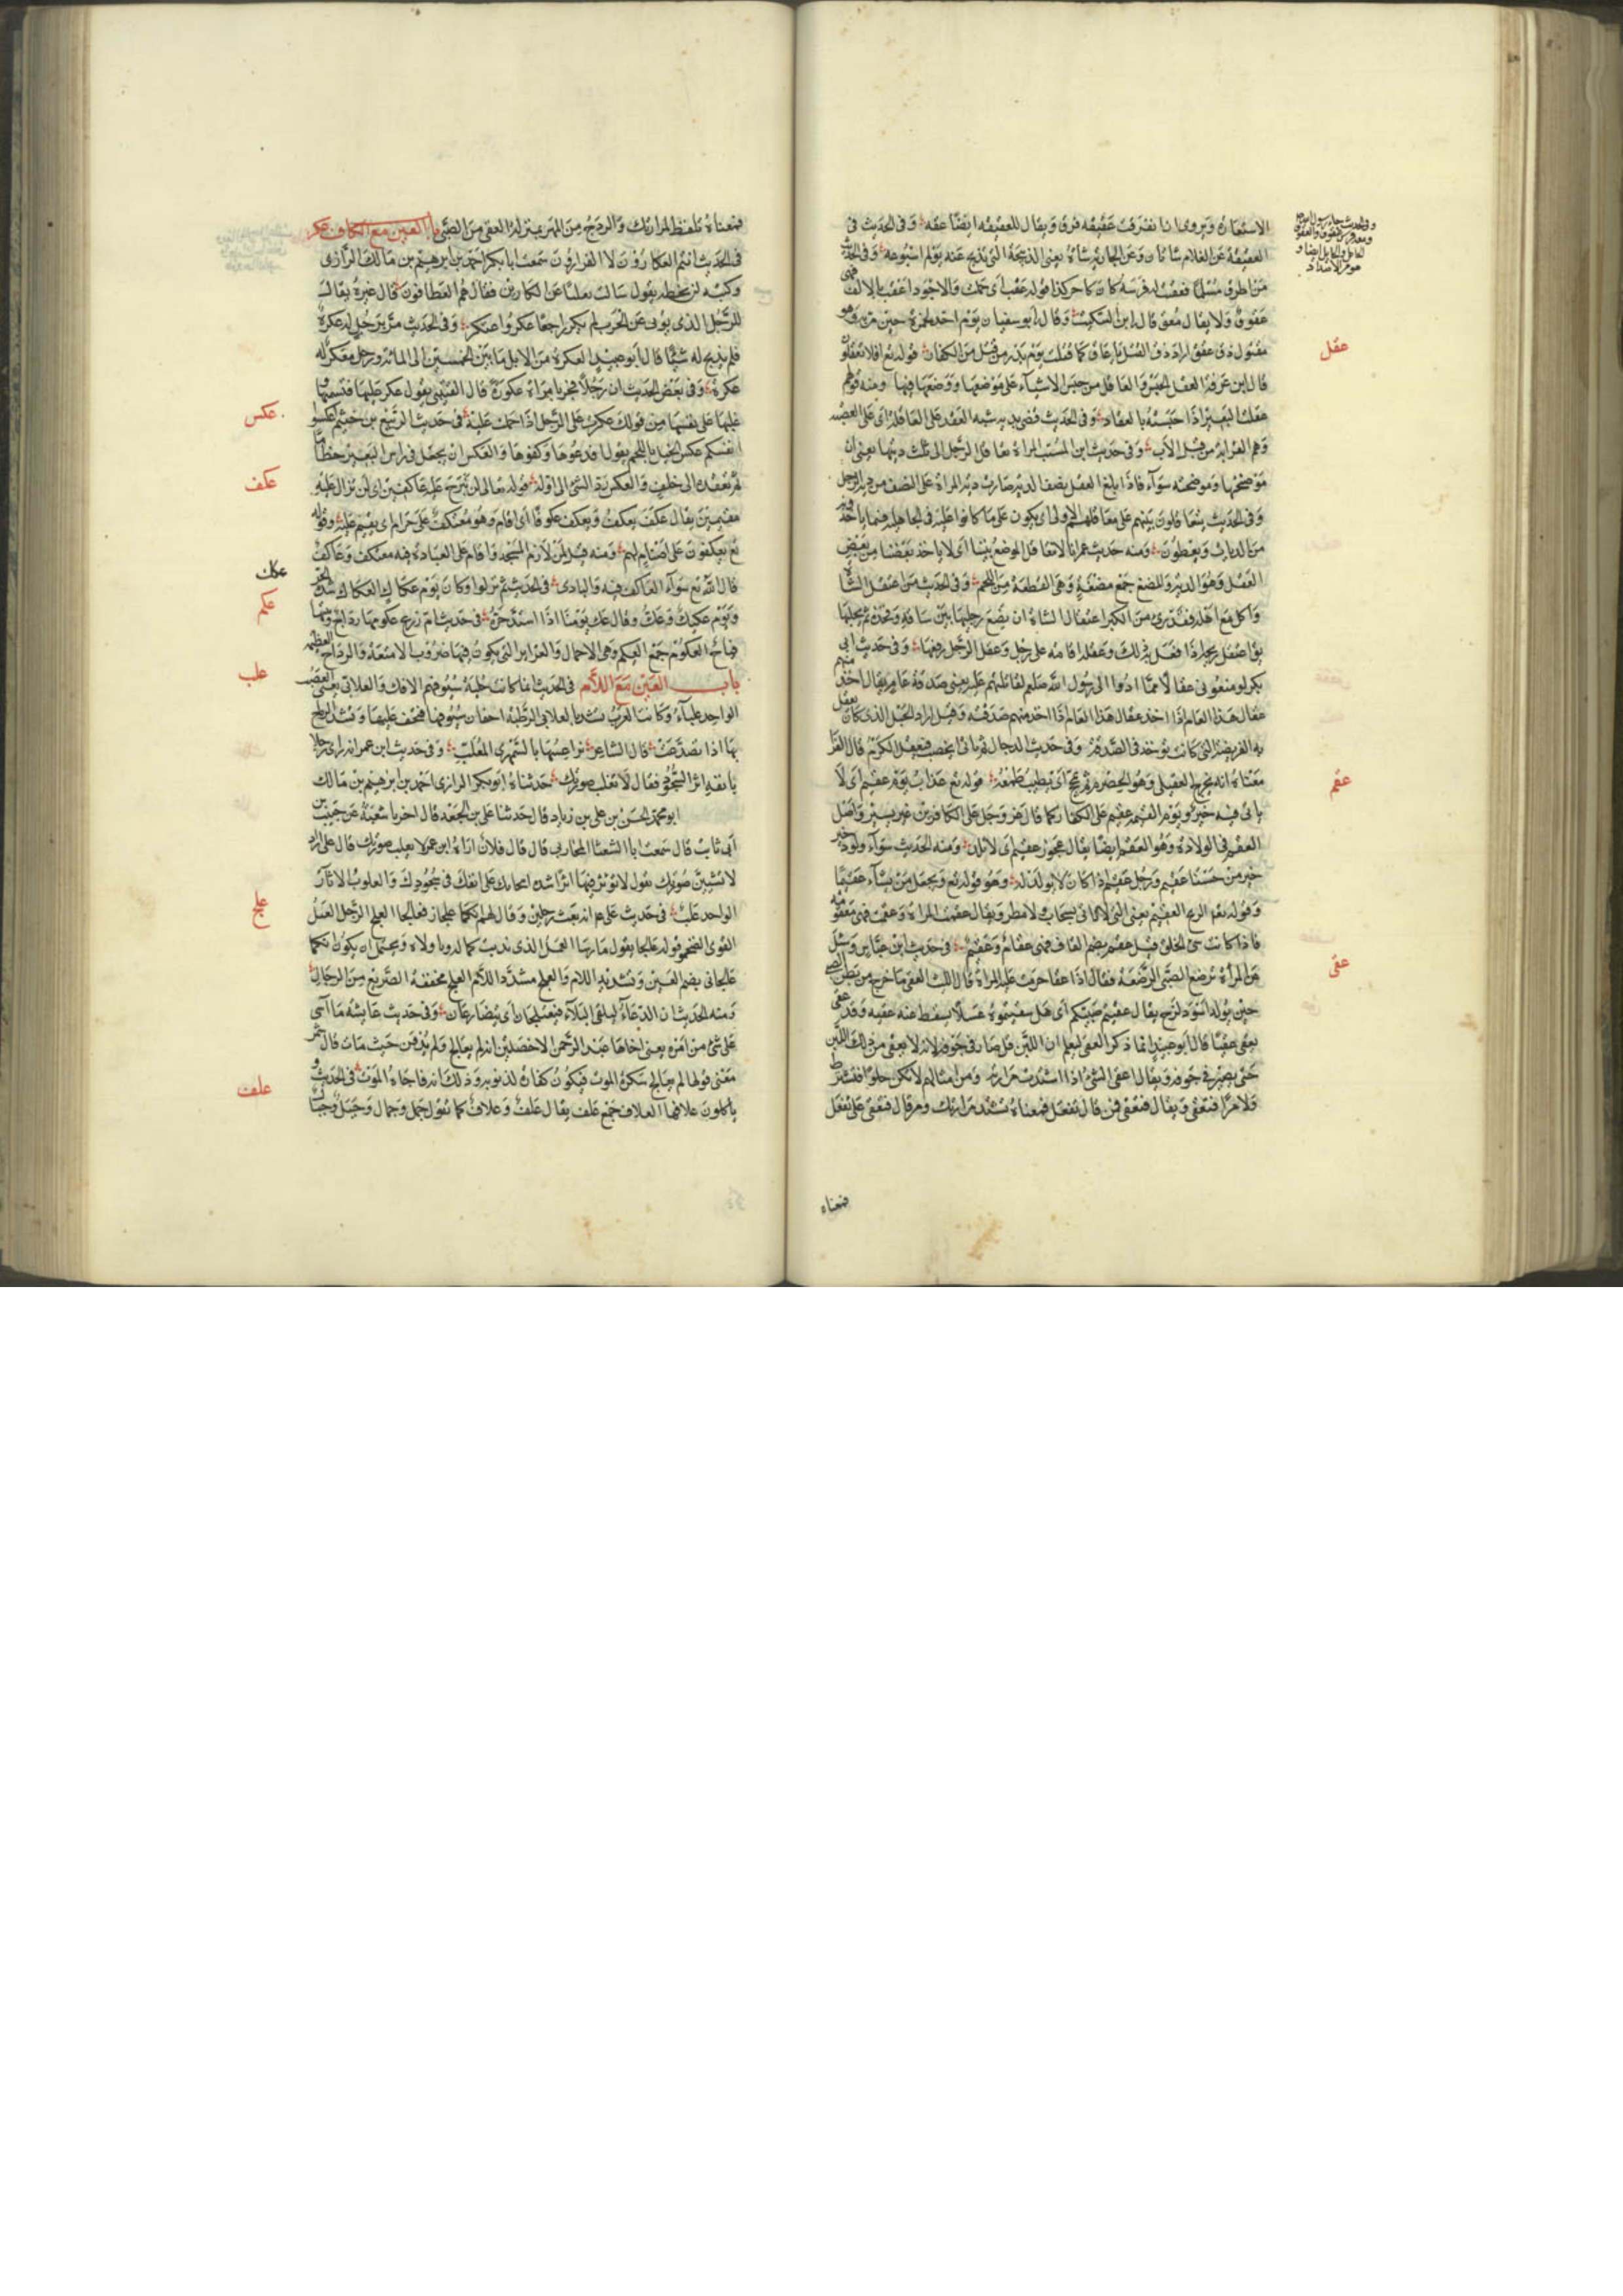 الاستعارة ويروى ان انفرقت عقيقته فرق ويقال للعقيقة ايضا عقة وفى الحديث فى
العقيقة عن الغلام شاتان وعن الجارية شاة يعنى الذبيحة التى تذبح عنه يوم اسبوعه وفى الحديث
من اطرق مسلما فعقت له فرسه كان كاجر كذا قوله عقت اى حملت والاجود اعقت بالالف فهى
عقوق ولا يقال معق قال ابن السكيت وقال ابو سفيان يوم احد لحمزة حين مر به وهو
مقتول ذق عقق اراد ذق القتل يا عاق كما قتلت يوم بدر من قتلت من الكفار قوله تع افلا تعقلون
قال ابن عرفة العقل الحبس والعاقل من حبس الاشياء على موضعها ووضعها فيها ومنه قولهم
عقلت البعير اذا حبسته بالعقال وفى الحديث قضى بدية شبه العمد على العاقلة اى على العصبة
وهم القرابة من قبل الاب وفى حديث ابن المسيب المراة تعاقل الرجل الى ثلث ديتها يعنى ان
موضحتها وموضحته سوآء فاذا بلغ العقل نصف الدية صارت دية المراة على النصف من دية الرجل
وفى الحديث يتعاقلون بينهم على معاقلهم الاولى اى يكون على ما كانوا عليه فى الجاهلية فيما ياخذونه
من الديات ويعطون ومنه حديث عمر انا لا نتعاقل المضغ بيننا اى لا ياخذ بعضنا من بعض
العقل وهو الدية والمضغ جمع مضغة وهى القطعة من اللحم وفى الحديث من اعتقل الشاة
واكل مع اهله فقد برئ من الكبر اعتقال الشاة ان يضع رجليها بين ساقه وفخذه ثم يحلبها
وفى حديث ابى
بكر لو منعونى عقالا مما ادوا الى رسول الله صلعم لقاتلتهم عليه يعنى صدقة عام يقال اخذ منهم
عقال هذا العام اذا اخذ منهم صدقته وقيل اراد الحبل الذى كان يعقل
به الفريضة التى كانت تؤخذ فى الصدقة وفى حديث الدجال ثم ياتى الخصب فيعقل الكرم قال الفرا
معناه انه يخرج العقيلى وهو الحصرم ثم يمجج اى يطيب طعمه قوله تع عذاب يوم عقيم اى لا
ياتى فيه خير ويوم القيمة عقيم على الكفار كما قال عز وجل على الكافرين غير يسير واصل
العقم فى الولادة وهو العقم ايضا يقال عجوز عقيم اى لا تلد ومنه الحديث سوآء ولود خير
من حسنا عقيم ورجل عقيم اذا كان لا يولد له وهو قوله تع ويجعل من يشآء عقيما
وقوله تع الريح العقيم يعنى التى لا تاتى بسحاب ولا مطر ويقال عقمت المراة وعقمت فهى معقومة
فاذا كانت سئ الخلق قيل عقم بضم القاف فهى عقام وعقيم فى حديث ابن عباس وسئل
عن المرأة ترضع الصبى الرضعة فقال اذا عقا حرمت عليه المراة قال الليث العقى ما خرج من بطن الصبى
حين يولد اسود لزج يقال هل عقيتم صبيكم اى هل سقيتموه عسلا ليسقط عنه عقيه وقد عقى
يعقى عقيا قال ابو عبيد انما ذكر العقى ليعلم ان اللبن قد صار فى جوفه لانه لا يعقى من ذلك اللبن
حتى يصير فى جوفه ويقال اعقى الشئ اذا اشتدت مرارته ومن امثالهم لا تكن حلوا فتسترط
ولا مرا فتعقى ويقال فتعقى فمن قال تفعل فمعناه تشتد مرارتك ومن قال فتعقى على تفعل
فمعناه
عقل
عقم
عقى
فمعناه تلفظ لمرارتك والردج من المهر بمنزلة العقى من الصبى باب العين مع الكاف عكر
فى الحديث انتم العكارون لا الفرارون سمعت ابا بكر احمد بن ابرهيم بن مالك الرازى
وكتبه لى بخطه يقول سالت ثعلبا عن العكارين فقال هم العطافون قال غيره يقال
للرجل الذى يولى عن الحرب ثم يكر راجعا عكر واعتكر وفى الحديث مر برجل له عكرة
فلم يذبح له شيئا قال ابو عبيد العكرة من الابل ما بين الخمسين الى المائة ورجل معكر له
عكرة وفى بعض الحديث ان رجلا فجر بامراة عكورة قال القتيبى يقول عكر عليها فتسنمها
غلبها على نفسها من قولك عكرت على الرجل اذا حملت عليه فى حديث الربيع بن خثيم اعكسوا
انفسكم عكس الخيل باللجم يقول اقدعوها وكفوها والعكس ان يجعل فى راس البعير خطام
ثم يعقد الى خلف والعكس رد الشئ الى اوله قوله تعالى لن نبرح عليه عاكفين اى لن نزال عليه
مقيمين يقال عكف يعكف ويعكف عكوفا اى اقام وهو معتكف على حرام اى يقيم عليه وقوله
تع يعكفون على اصنام لهم ومنه قيل لمن لازم المسجد واقام على العبادة فيه معتكف وعاكف
قال الله تع سوآء العاكف فيه والبادى فى الحديث ثم نزلوا وكان يوم عكاك العكاك شدة الحر
ويوم عكيك وعك وقال عك يومنا اذا اشتد حره فى حديث ام زرع عكومها رداح وبيتها
فياح العكوم جمع العكم وهى الاحمال والغراير التى يكون فيها ضروب الامتعة والرداح العظيمة
باب العين مع اللام فى الحديث انما كانت حلية سيوفهم الانك والعلابى يعنى العصب
الواحد علبآء وكانت العرب تشد بالعلابى الرطبة اجفان سيوفها فتجف عليها وتشد الرماح
بها اذا تصدعت قال الشاعر نواعسها بالسمهرى المعلب وفى حديث ابن عمر انه راى رجلا
بانفه اثر السجود فقال لا تعلب صورتك حدثناه ابو بكر الرازى احمد بن ابرهيم بن مالك
ابو محمد الحسن بن على بن زياد قال حدثنا على بن الجعد قال اخبرنا شعبة عن حبيب بن
ابى ثابت قال سمعت ابا الشعثا المحاربى قال قال فلان اراه ابن عمر لا تعلب صورتك قال على اراد
لا تشين صورتك يقول لا تؤثر فيها اثرا بشدة انتحائك على انفك فى سجودك والعلوب الاثار
الواحد علب فى حديث على انه بعث رجلين وقال لهم انكما علجان فعالجا العلج الرجل العبل
القوى الضخم وقوله عالجا يقول مارسا العمل الذى ندبتكما له وزاولاه ويحتمل ان يكون انكما
علجان بضم العين وتشديد اللام والعلج مشدد اللام والعلج مخففه الصريع من الرجال
ومنه الحديث ان الدعآء ليلقى البلآء فيعتلجان اى يتصارعان وفى حديث عايشة ما آسى
على شئ من امره يعنى اخاها عبد الرحمن الا خصلتين انه لم يعالج ولم يدفن حيث مات قال شمر
معنى قولها لم يعالج سكرة الموت فيكون كفارة لذنوبه وذلك انه فاجاه الموت فى الحديث
ياكلون علافها العلاف جمع علف يقال علف وعلاف كما تقول جمل وجمال وجبل وجبال
عكس
عكف
عكك
عكم
علب
علج
علف